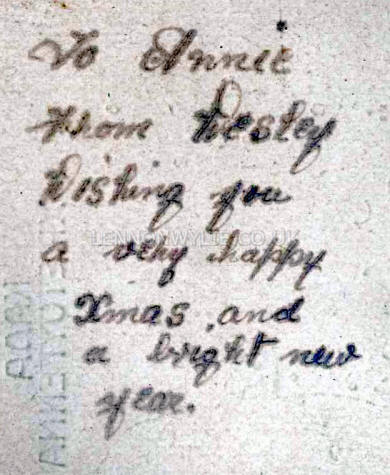 To Annie
From Wesley
Wishing you
a very happy
LENNONWYLIE.CO.UK
Xmas, and
a bright new
year.